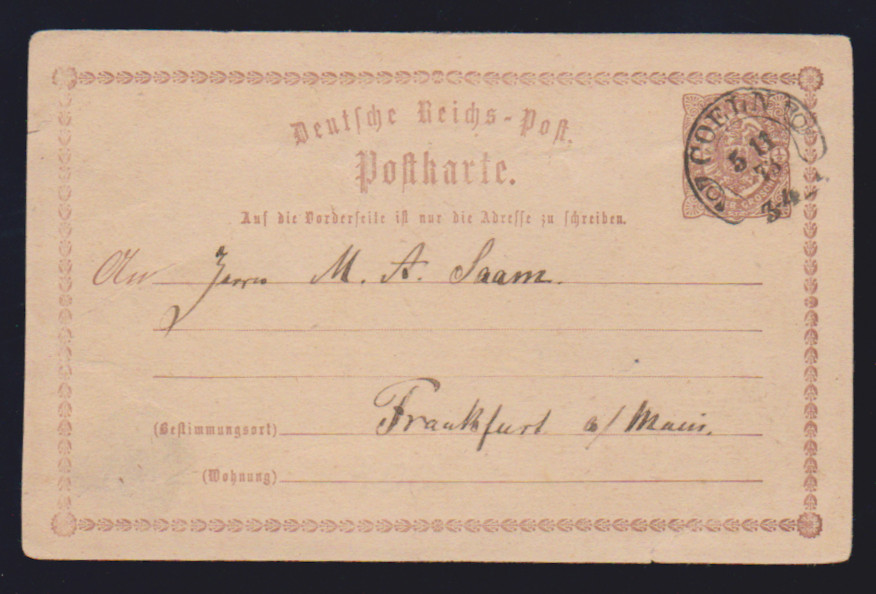 Deutsche Reichs-Post.
Postkarte.
COELN
5 11
3-4
Auf die Vorderseite ist nur die Adresse zu schreiben.
An Herrn M. A. Saam.
(Bestimmungsort) Frankfurt a/Main.
(Wohnung)